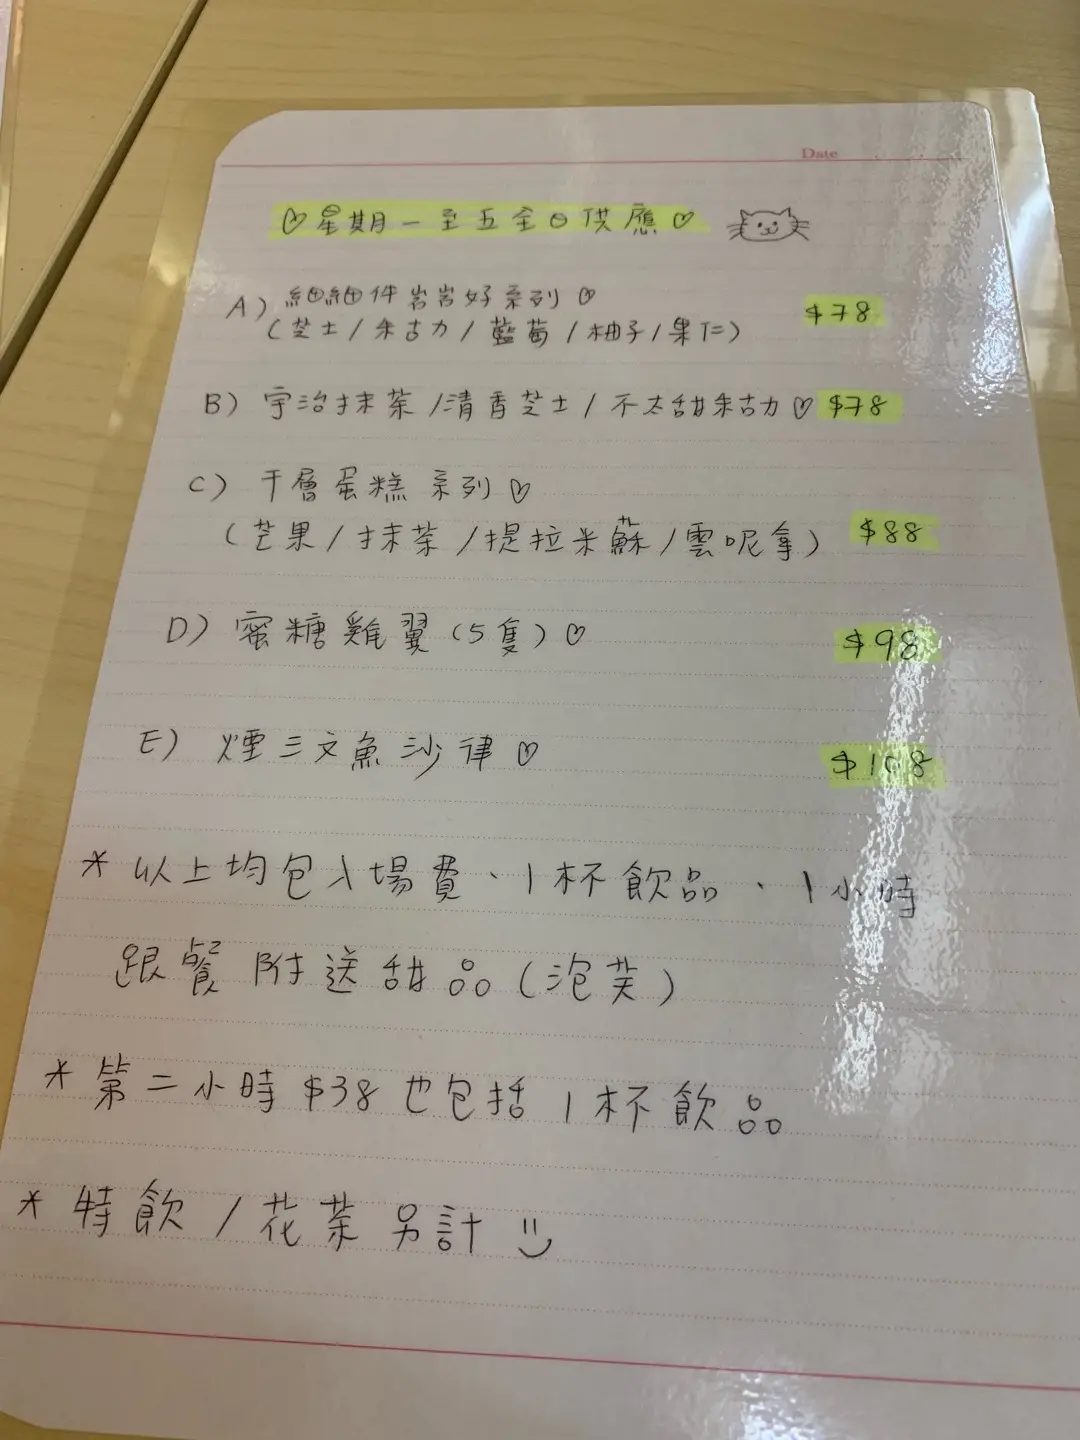 Date
♡星期一至五全日供應♡
A) 細細件岩岩好系列♡
(芝士/朱古力/藍莓/柚子/果仁) $78
B) 宇治抹茶/清香芝士/不太甜朱古力♡ $78
C) 千層蛋糕系列♡
(芒果/抹茶/提拉米蘇/雲呢拿) $88
D) 蜜糖雞翼(5隻)♡ $98
E) 煙三文魚沙律♡ $108
* 以上均包入場費、1杯飲品、1小時
跟餐附送甜品(泡芙)
* 第二小時$38也包括1杯飲品
* 特飲/花茶另計